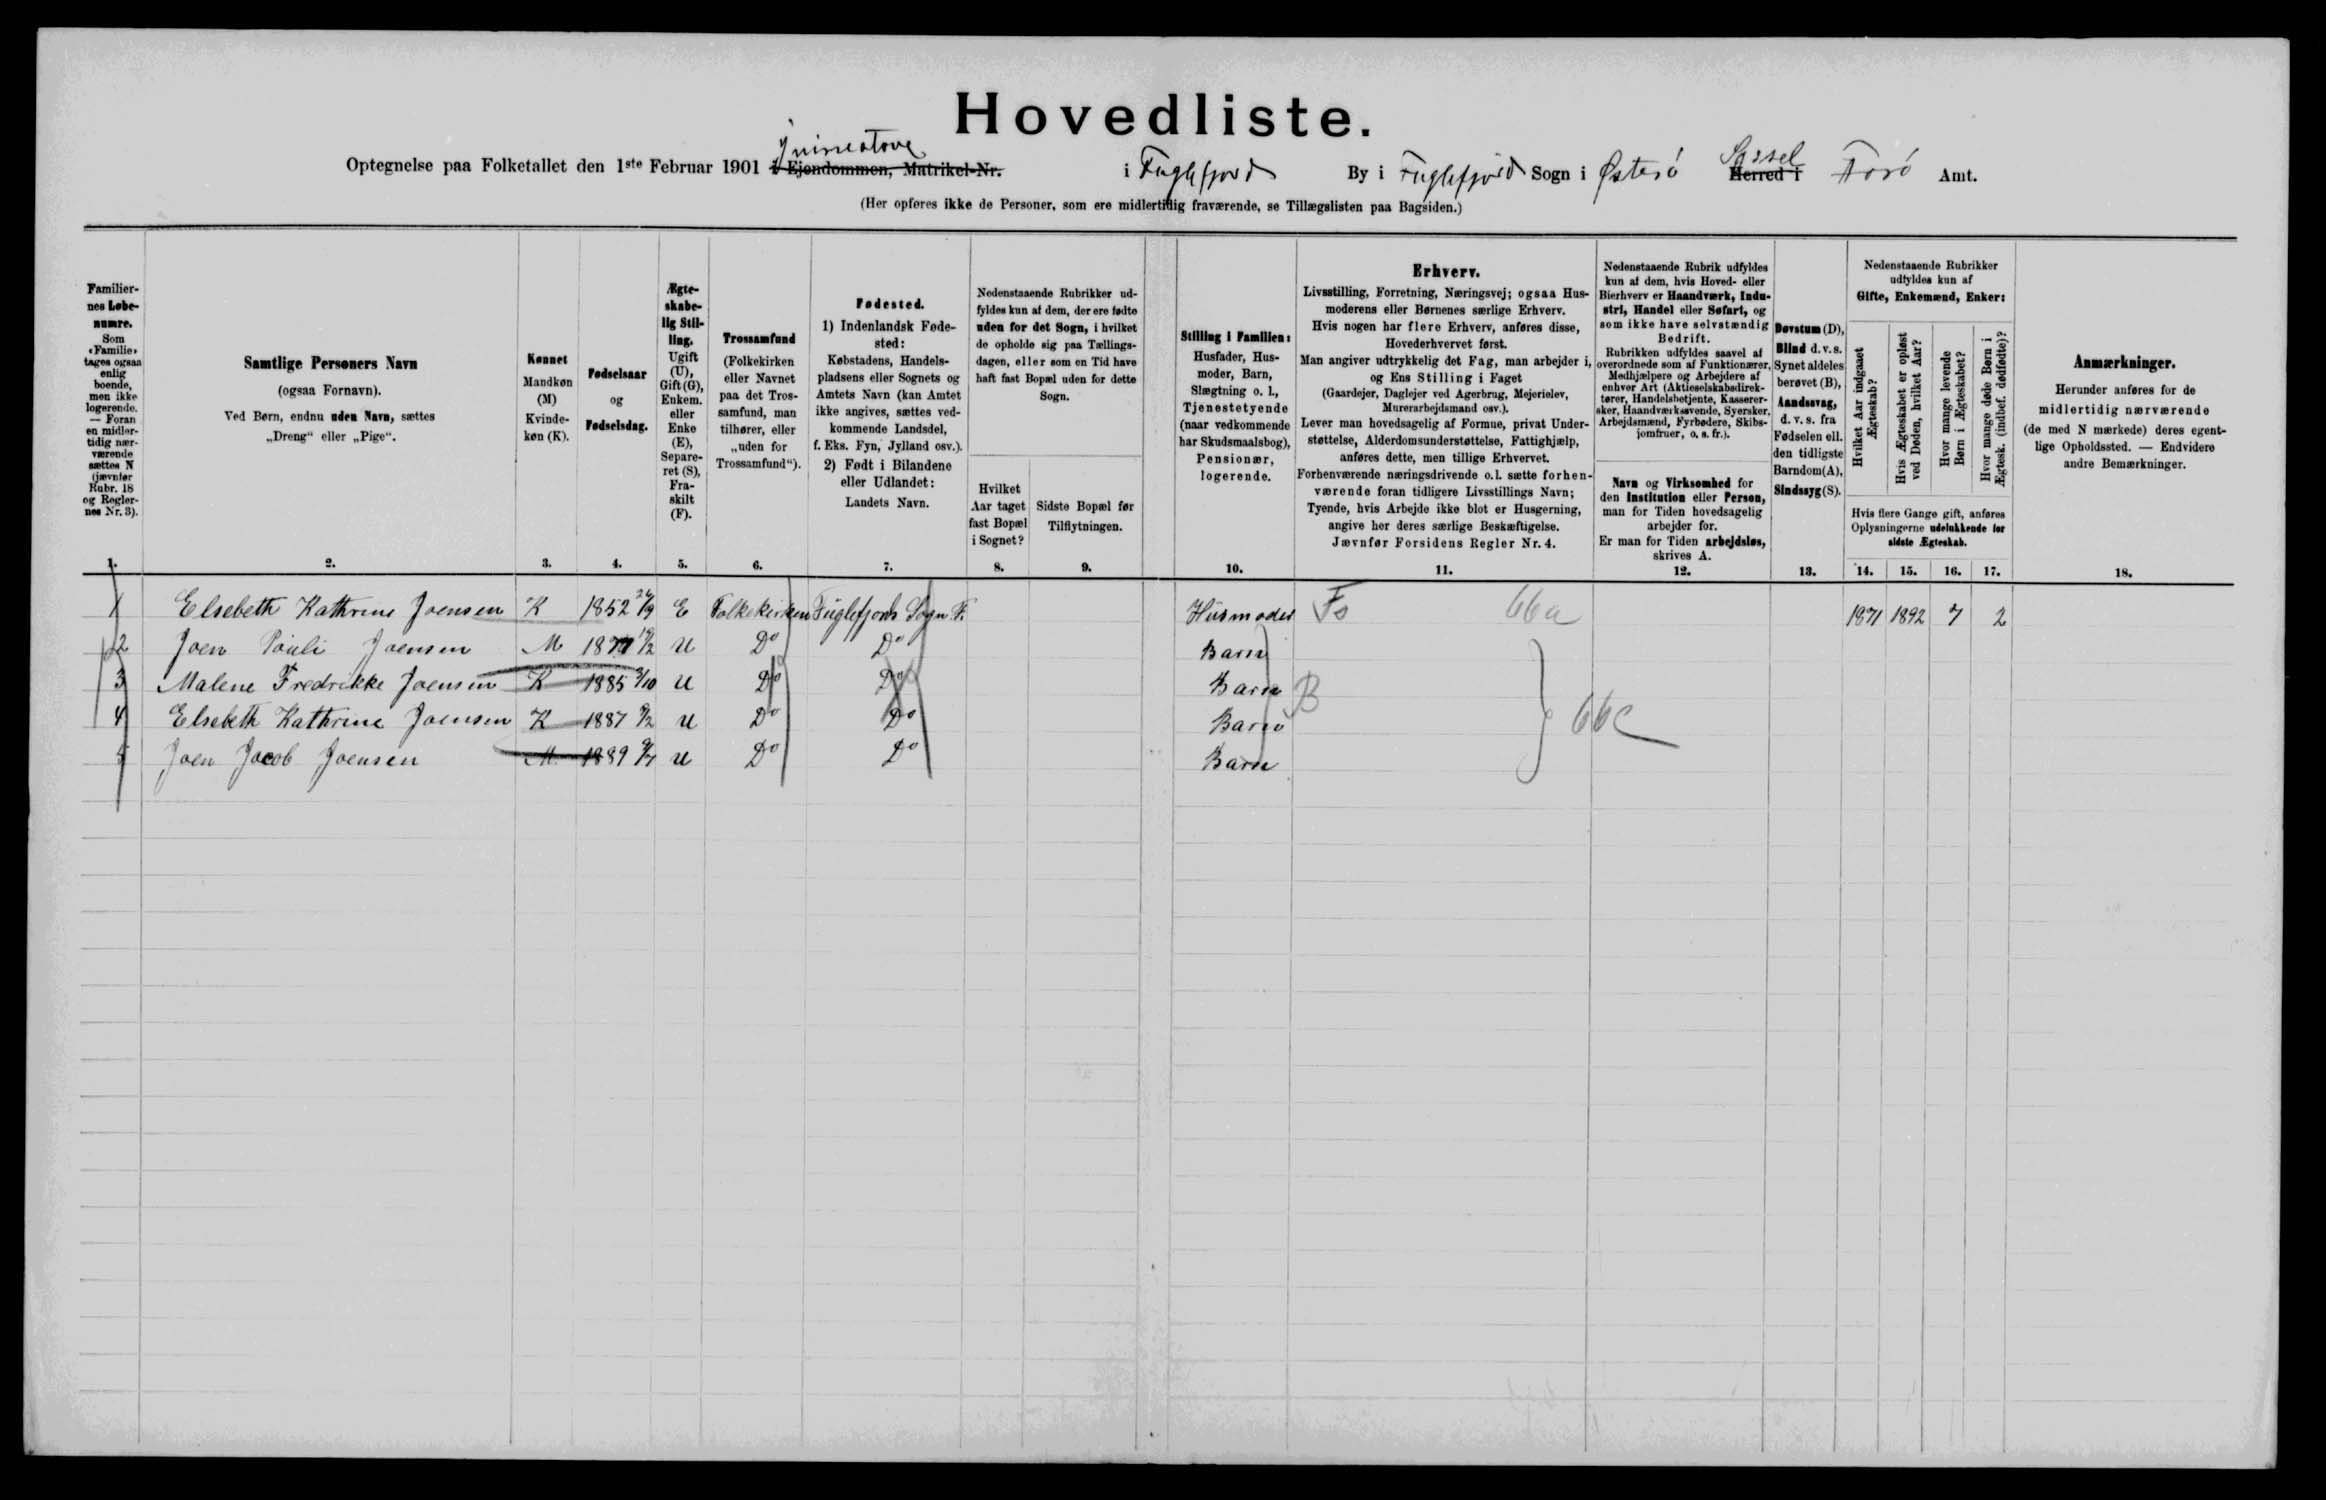 Hovedliste.
Optegnelse paa Folketallet den 1ste Februar 1901 i Ejendommen, Matrikel-Nr. i Fuglefjord By i Fuglefjord Sogn i Østerø Syssel Herred i Færø Amt.
(Her opføres ikke de Personer, som ere midlertidig fraværende, se Tillægslisten paa Bagsiden.)
Familiernes Løbenumre.
Som «Familie» tages ogsaa enlig boende, men ikke logerende. — Foran en midlertidig nærværende sættes N (jævnfør Rubr. 18 og Reglernes Nr. 3).
1.
Samtlige Personers Navn
(ogsaa Fornavn).
Ved Børn, endnu uden Navn, sættes
„Dreng“ eller „Pige“.
2.
Kønnet
Mandkøn
(M)
Kvinde-
køn (K).
3.
Fødselsaar
og
Fødselsdag.
4.
Ægteskabelig Stilling.
Ugift (U), Gift (G), Enkem. eller Enke (E), Separeret (S), Fraskilt (F).
5.
Trossamfund
(Folkekirken
eller Navnet
paa det Tros-
samfund, man
tilhører, eller
„uden for
Trossamfund“).
6.
Fødested.
1) Indenlandsk Føde-
sted:
Købstadens, Handels-
pladsens eller Sognets og
Amtets Navn (kan Amtet
ikke angives, sættes ved-
kommende Landsdel,
f. Eks. Fyn, Jylland osv.).
2) Født i Bilandene
eller Udlandet:
Landets Navn.
7.
Nedenstaaende Rubrikker ud-
fyldes kun af dem, der ere fødte
uden for det Sogn, i hvilket
de opholde sig paa Tællings-
dagen, eller som en Tid have
haft fast Bopæl uden for dette
Sogn.
Hvilket
Aar taget
fast Bopæl
i Sognet?
8.
Sidste Bopæl før
Tilflytningen.
9.
Stilling i Familien:
Husfader, Hus-
moder, Barn,
Slægtning o. l.,
Tjenestetyende
(naar vedkommende
har Skudsmaalsbog),
Pensionær,
logerende.
10.
Erhverv.
Livsstilling, Forretning, Næringsvej; ogsaa Hus-
moderens eller Børnenes særlige Erhverv.
Hvis nogen har flere Erhverv, anføres disse,
Hovederhvervet først.
Man angiver udtrykkelig det Fag, man arbejder i,
og Ens Stilling i Faget
(Gaardejer, Daglejer ved Agerbrug, Mejerielev,
Murerarbejdsmand osv.).
Lever man hovedsagelig af Formue, privat Under-
støttelse, Alderdomsunderstøttelse, Fattighjælp,
anføres dette, men tillige Erhvervet.
Forhenværende næringsdrivende o.l. sætte forhen-
værende foran tidligere Livsstillings Navn;
Tyende, hvis Arbejde ikke blot er Husgerning,
angive her deres særlige Beskæftigelse.
Jævnfør Forsidens Regler Nr. 4.
11.
Nedenstaaende Rubrik udfyldes
kun af dem, hvis Hoved- eller
Bierhverv er Haandværk, Indu-
stri, Handel eller Søfart, og
som ikke have selvstændig
Bedrift.
Rubrikken udfyldes saavel af
overordnede som af Funktionærer,
Medhjælpere og Arbejdere af
enhver Art (Aktieselskabsdirek-
tører, Handelsbetjente, Kasserer-
sker, Haandværkssvende, Syersker,
Arbejdsmænd, Fyrbødere, Skibs-
jomfruer, o. s. fr.).
Navn og Virksomhed for
den Institution eller Person,
man for Tiden hovedsagelig
arbejder for.
Er man for Tiden arbejdsløs,
skrives A.
12.
Døvstum (D),
Blind d. v. s.
Synet aldeles
berøvet (B),
Aandssvag,
d. v. s. fra
Fødselen ell.
den tidligste
Barndom (A),
Sindssyg (S).
13.
Nedenstaaende Rubrikker
udfyldes kun af
Gifte, Enkemænd, Enker:
Hvilket Aar indgaaet
Ægteskab?
Hvis Ægteskabet er opløst
ved Døden, hvilket Aar?
Hvor mange levende
Børn i Ægteskabet?
Hvor mange døde Børn i
Ægtesk. (indbef. dødfødte)?
Hvis flere Gange gift, anføres
Oplysningerne udelukkende for
sidste Ægteskab.
14. 15. 16. 17.
Anmærkninger.
Herunder anføres for de
midlertidig nærværende
(de med N mærkede) deres egent-
lige Opholdssted. — Endvidere
andre Bemærkninger.
18.
1 Elsebeth Kathrine Joensen K 1852 E Folkekirken Fuglefjords Sogn F. Husmoder Fo 66a 1871 1892 7 2
2 Joen Pauli Joensen M U Do Do Barn
3 Malene Fredrikke Joensen K 1885 3/10 U Do Do Barn B
4 Elsebeth Kathrine Joensen K 1887 U Do Do Barn 66c
5 Joen Jacob Joensen M 1889 U Do Do Barn